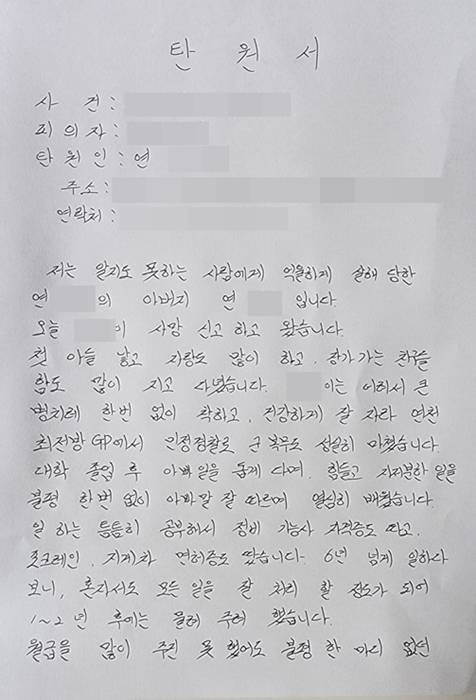 탄 원 서
사 건 :
피 의 자 :
탄 원 인 : 연
주소 :
연락처 :
저는 알지도 못하는 사람에게 억울하게 살해 당한
연 의 아버지 연 입니다.
오늘 이 사망 신고 하고 왔습니다.
첫 아들 낳고 자랑도 많이 하고. 장가 가는 친구들
함도 많이 지고 다녔습니다. 이는 어려서 큰
병치레 한번 없이 착하고, 건강하게 잘 자라 연천
최전방 GP에서 민정경찰로 군 복무도 성실히 마쳤습니다.
대학 졸업 후 아빠 일을 돕게 다며, 힘들고 지저분한 일을
불평 한 번 없이 아빠말 잘 따르며 열심히 배웠습니다.
일 하는 틈틈히 공부해서 정비 기능사 자격증도 따고.
지게차 면허증도 땄습니다. 6년 넘게 일하다
보니, 혼자서도 모든 일을 잘 처리 할 정도가 되어
1~2 년 후에는 물려 주려 했습니다.
월급을 많이 주진 못 했어도 불평 한 마디 없던